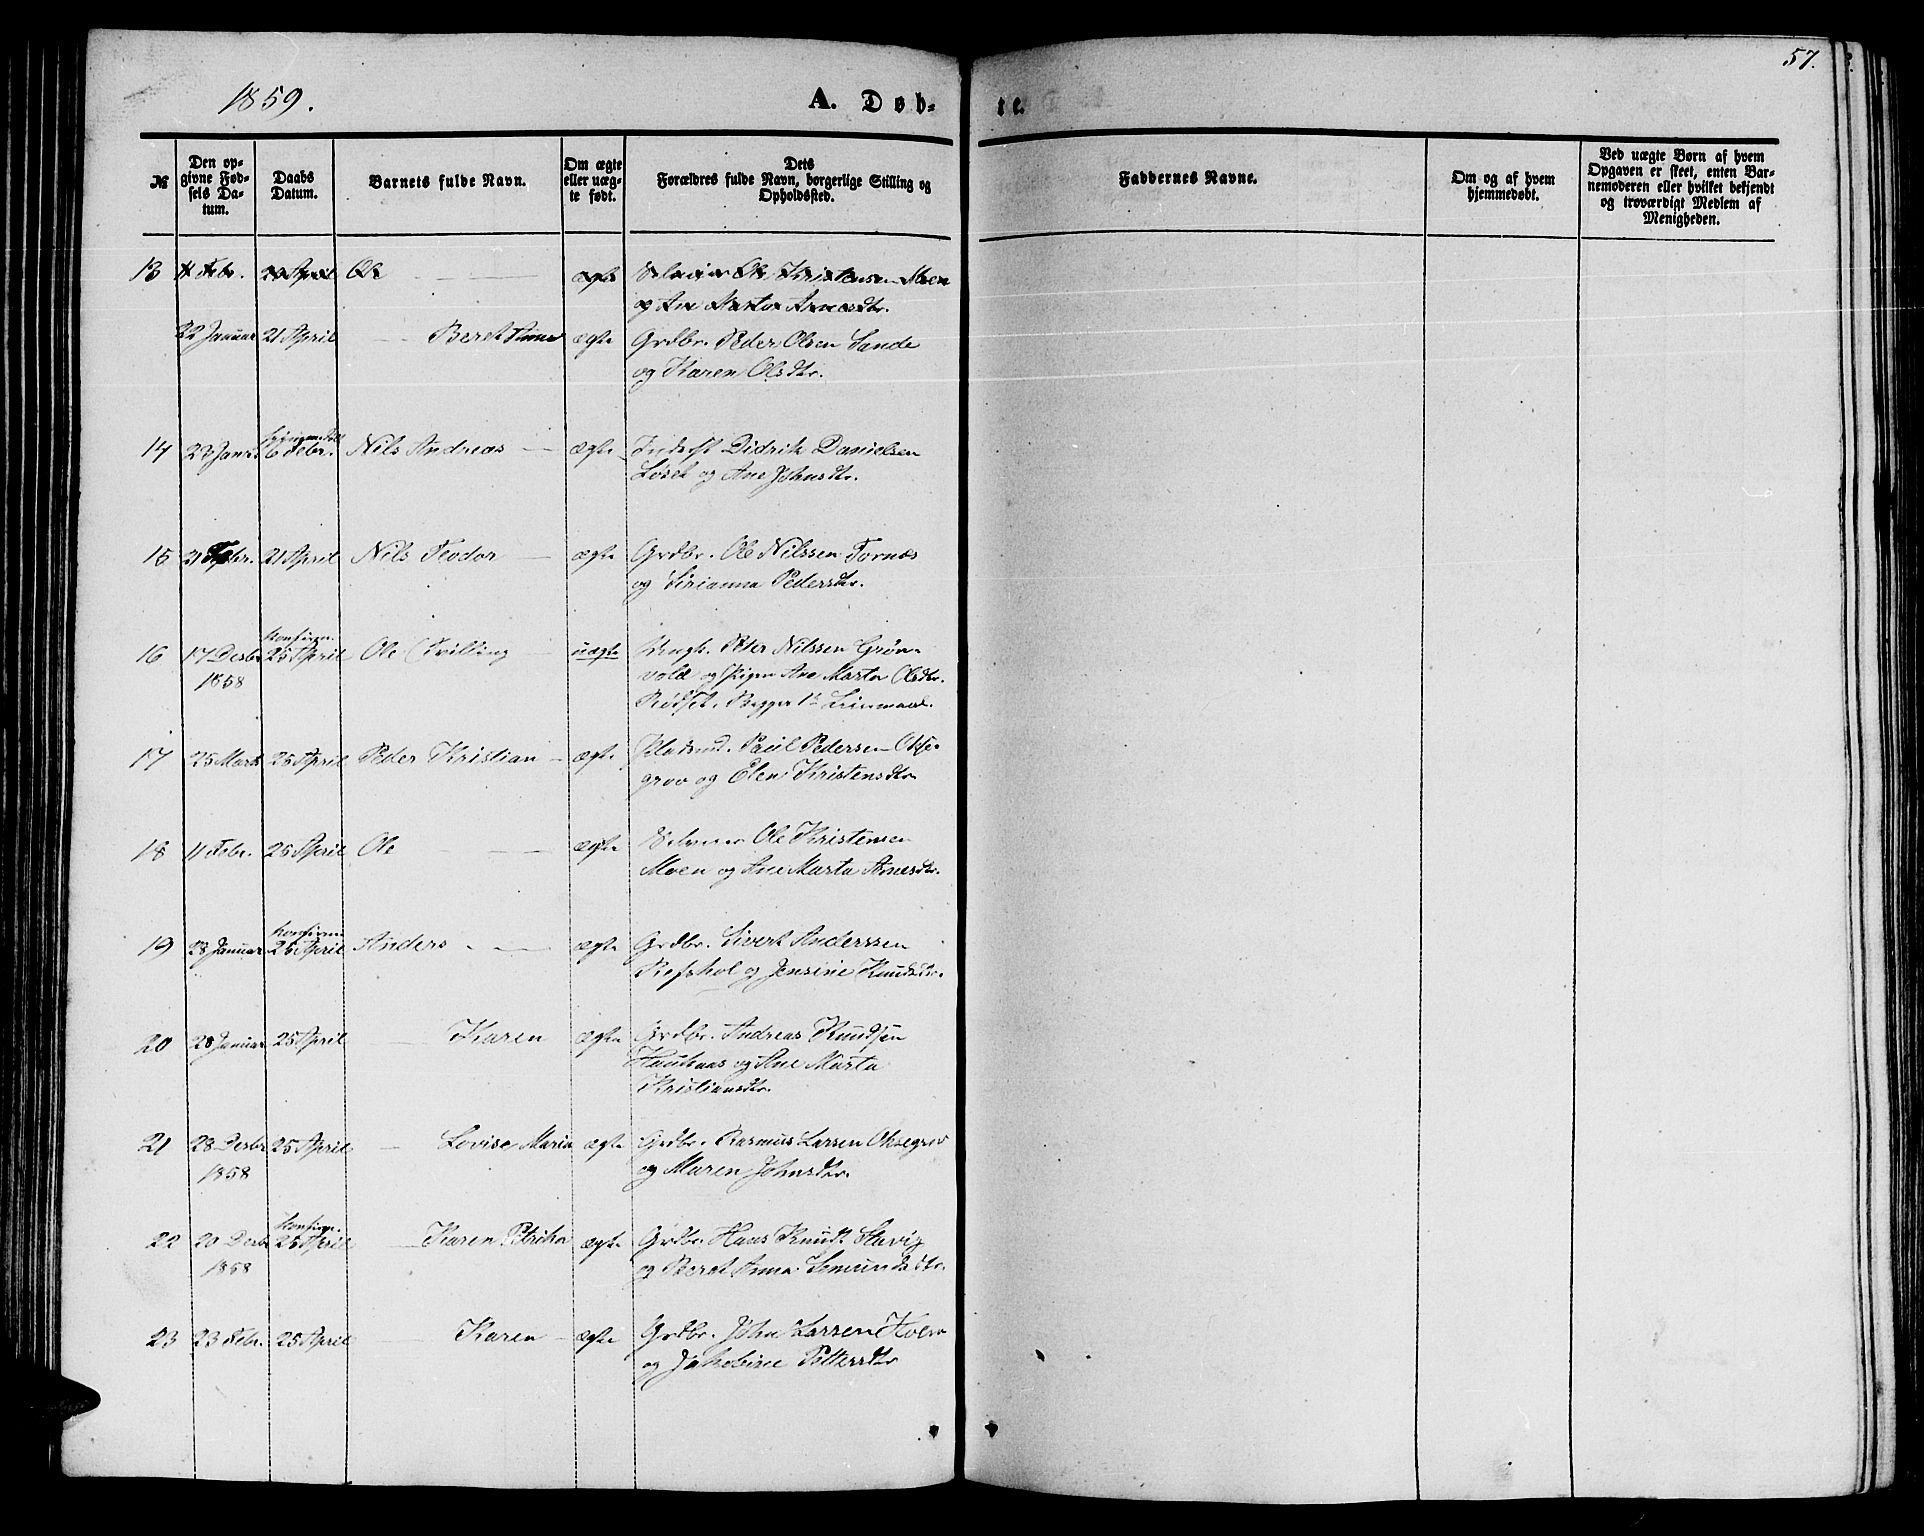 57.
1859.
A. Døb-
te.
№
Den op-
givne Fød-
sels Da-
tum.
Daabs
Datum.
Barnets fulde Navn.
Om ægte
eller uæg-
te født.
Dets
Forældres fulde Navn, borgerlige Stilling og
Opholdssted.
Faddernes Navne.
Om og af hvem
hjemmedøbt.
Ved uægte Børn af hvem
Opgaven er skeet, enten Bar-
nemoderen eller hvilket bekjendt
og troværdigt Medlem af
Menigheden.
13 Febr. April Ole ægte Ole Kristensen Moen
og Ane Marta Arnesdtr.
22 Januar 21 April Beret Anna ægte Grdbr. Peder Olsen Sande
og Karen Olsdtr.
14 22 Janr. 6 Febr. Nils Andreas ægte Didrik Danielsen
Løset og Ane Johnsdtr.
15 Febr. 21 April Nils Teodor ægte Grdbr. Ole Nilssen Tornes
og Sirianna Pedersdtr.
Konfirm.
16 17 Decbr 25 April Ole (Tvilling uægte Ungk. Peter Nilssen Grøn-
1858 vold og Pigen Ane Marta Olsdtr.
Rødset. Begges 1ste Leiermaal.
17 25 Marts 25 April Peder Kristian ægte Pladsmd. Paul Pedersen Okse-
grov og Elen Kristensdtr
18 11 Febr. 25 April Ole ægte Ole Kristensen
Moen og Ane Marta Arnesdtr.
Konfirm
19 28 Januar 25 April Anders ægte Grdbr. Sivert Anderssen
Refshol og Jensine Knudsdtr.
20 28 Januar 25 April Karen ægte Grdbr. Andreas Knudsen
Haukaas og Ane Marta
Kristiansdtr.
21 28 Decbr 25 April Lovise Maria ægte Grdbr. Rasmus Larsen Oksegrov
1858 og Maren Johnsdtr.
Konfirm.
22 20 Decbr 25 April Karen Petrika ægte Grdbr. Hans Knudt. Slavig
1858 og Beret Anna
23 23 Febr. 25 April Karen ægte Grdbr. John Larssen
og Jakobine Pettersdtr